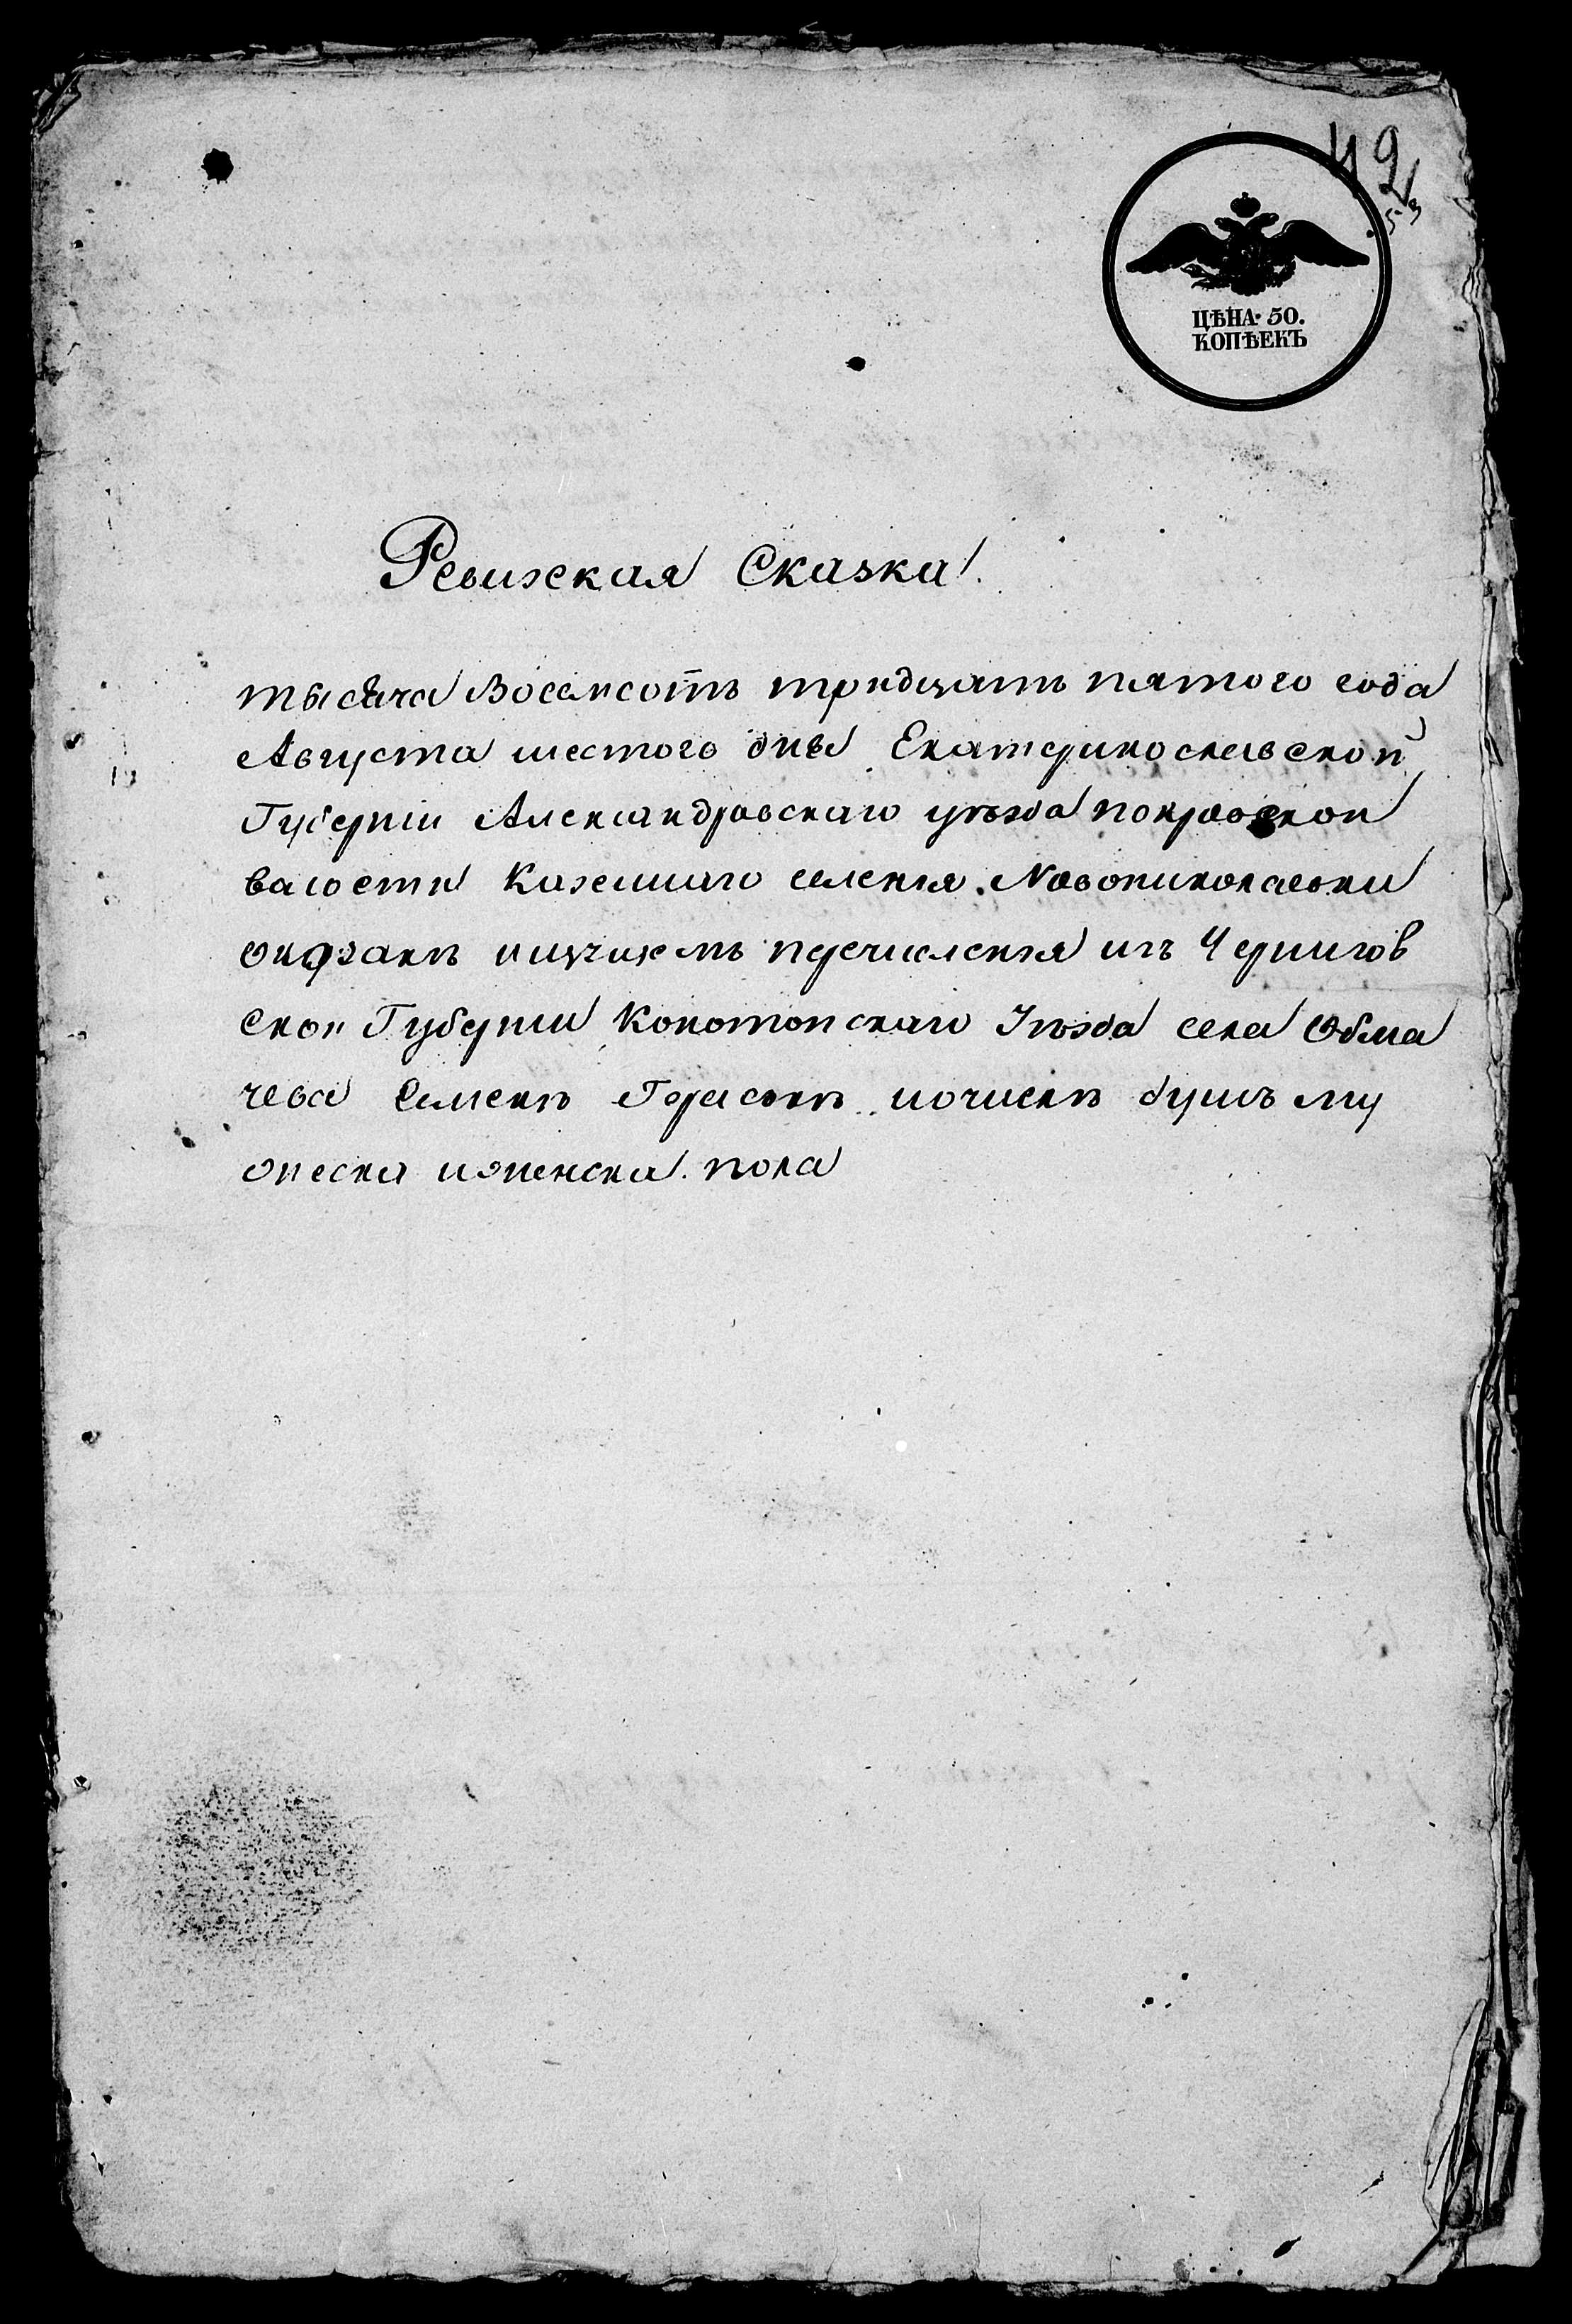 42
53
ЦѢНА· 50.
КОПѢЕКЪ
Ревизская Сказка
тысяча Восемсотъ тридцать пятого года
Августа шестого дня Екатеринославской
Губернiи Александровскаго уѣзда покровской
валости Казеннаго селенiя Новониколаевки
ищущемъ перечисленiя изъ Чернигов
ской Губернiи Конотопскаго Уѣзда села Обма
чева Семенъ ночислѣ душъ му
жеска иженска пола